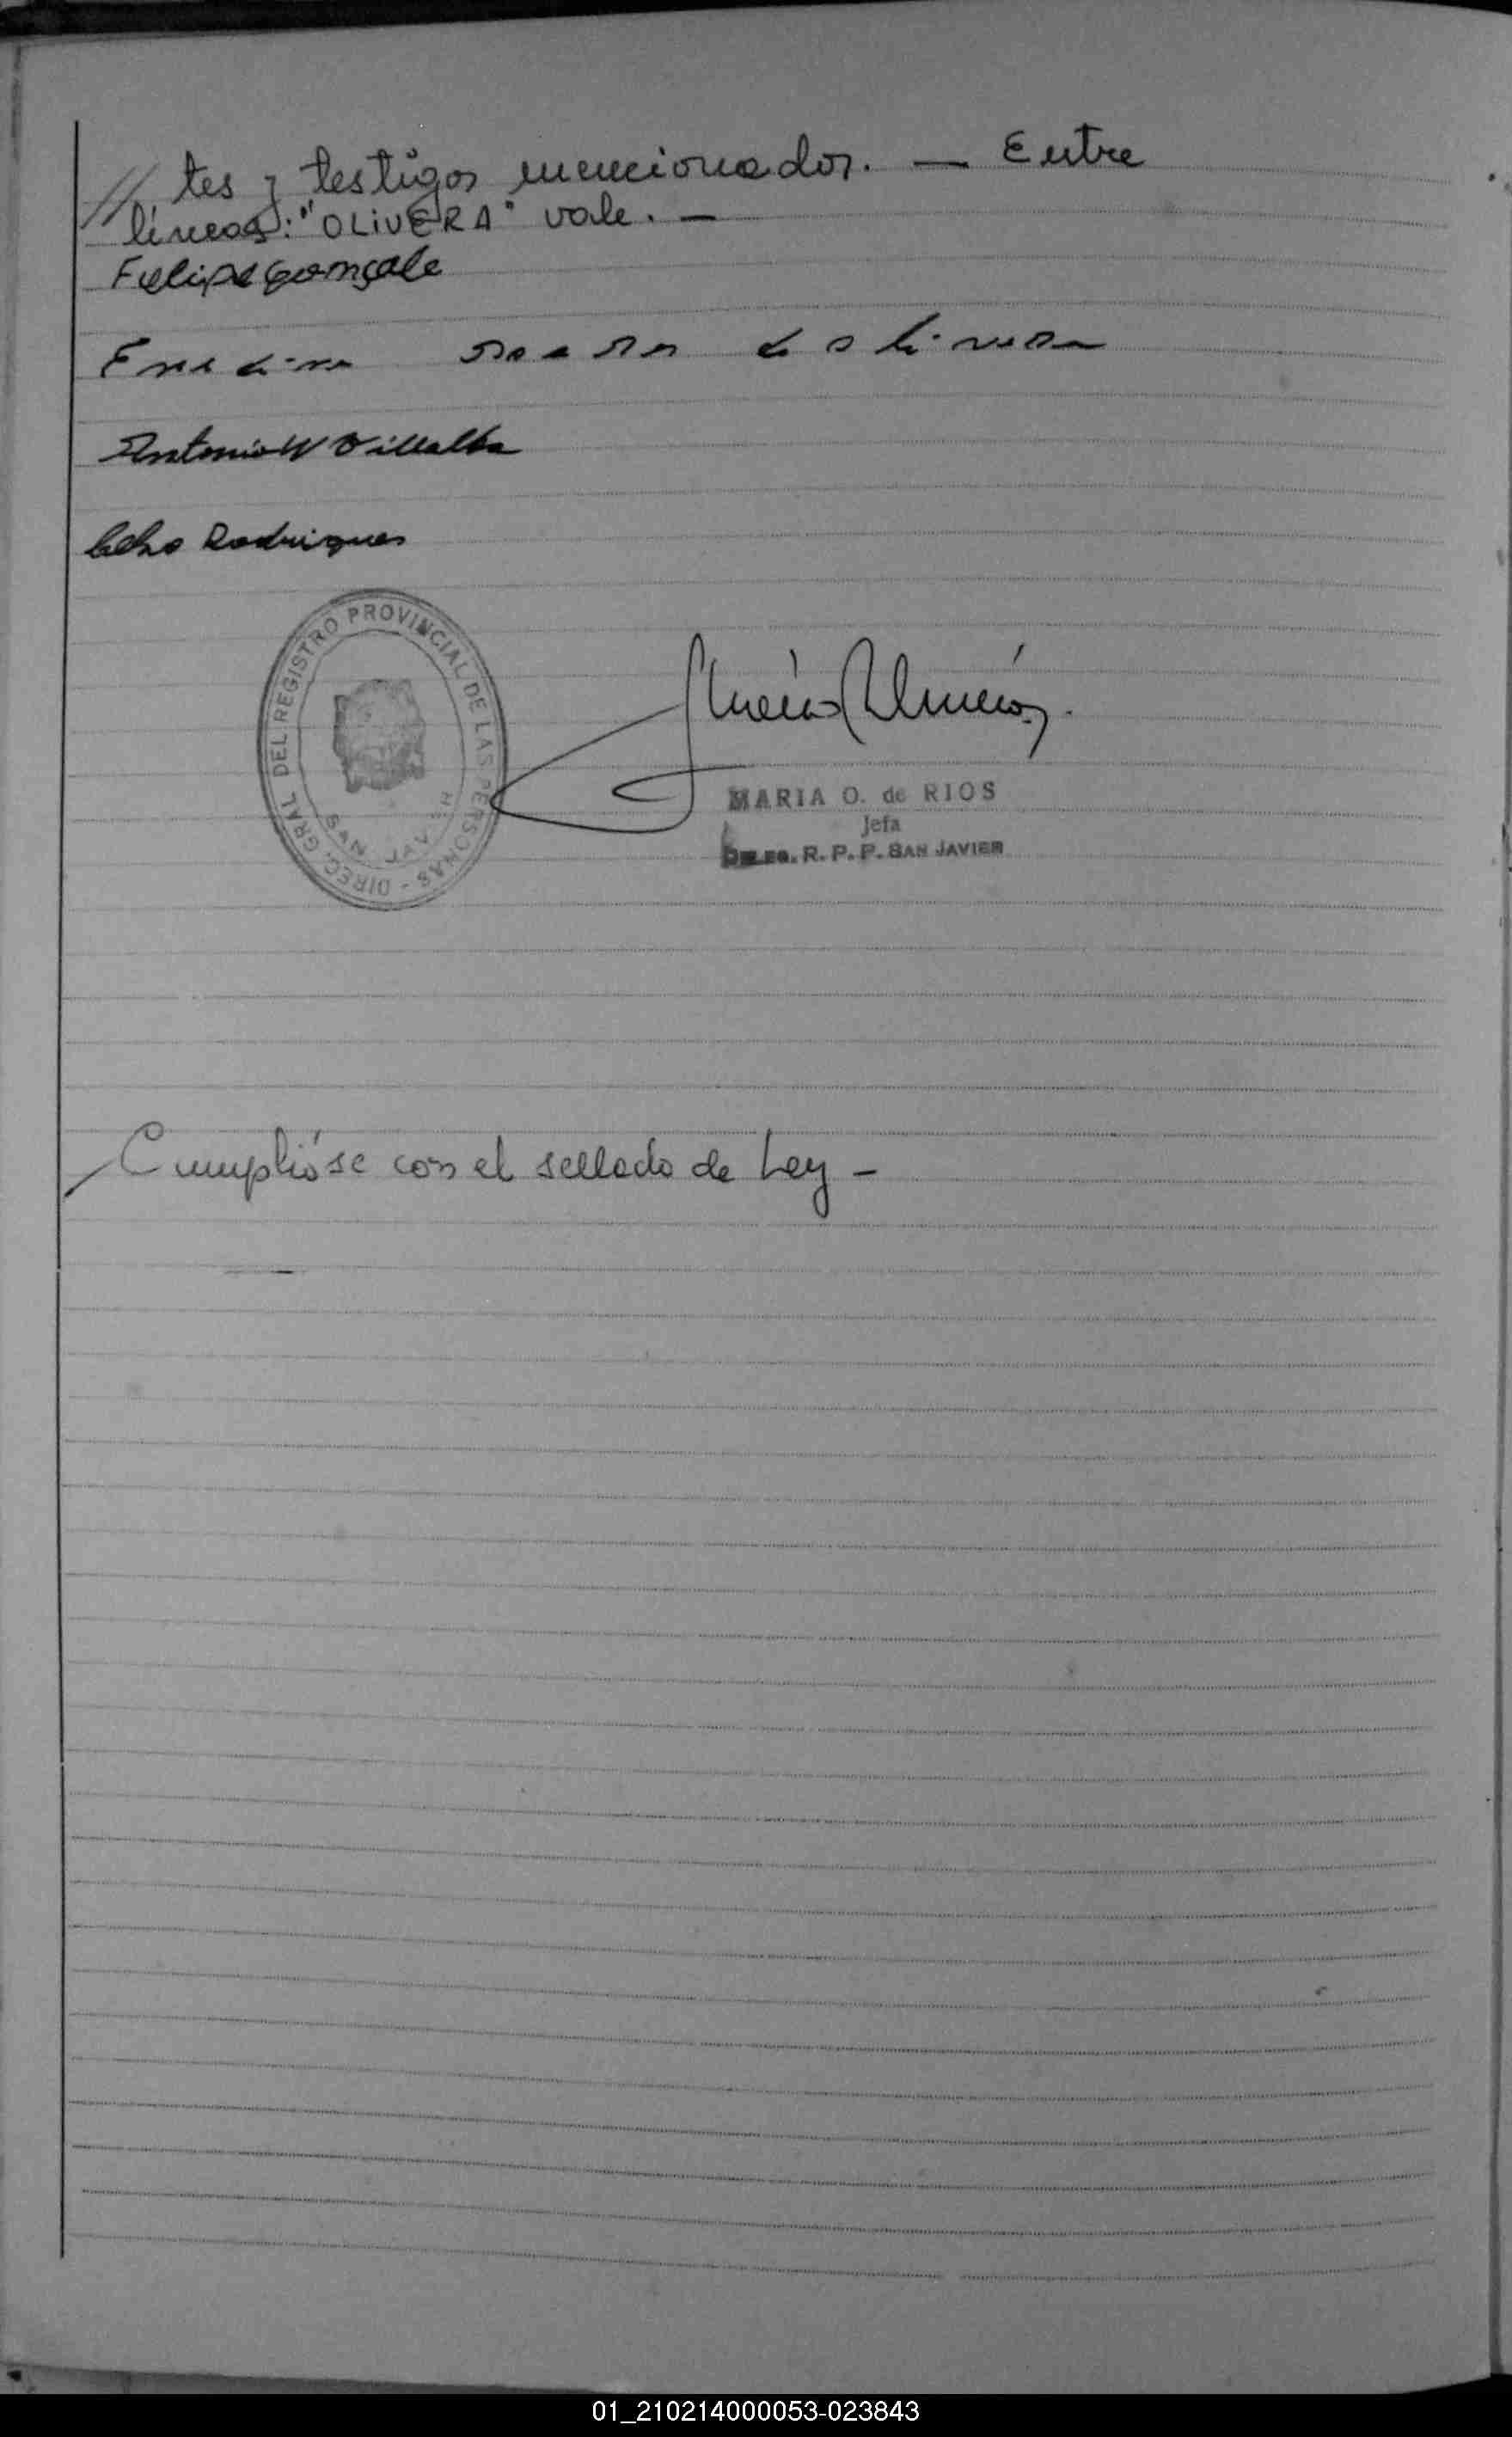 // tes y testigos mencionados. — Entre
líneas: "OLIVERA" vale. —
Felipe Gonçale
de olivera
Antonio W Villalba
Rodrigues
DIREC. GRAL DEL REGISTRO PROVINCIAL DE LAS PERSONAS -
SAN JAVIER
MARIA O. de RIOS
Jefa
DELEG. R. P. P. SAN JAVIER
Cumplióse con el sellado de Ley -
01_210214000053-023843